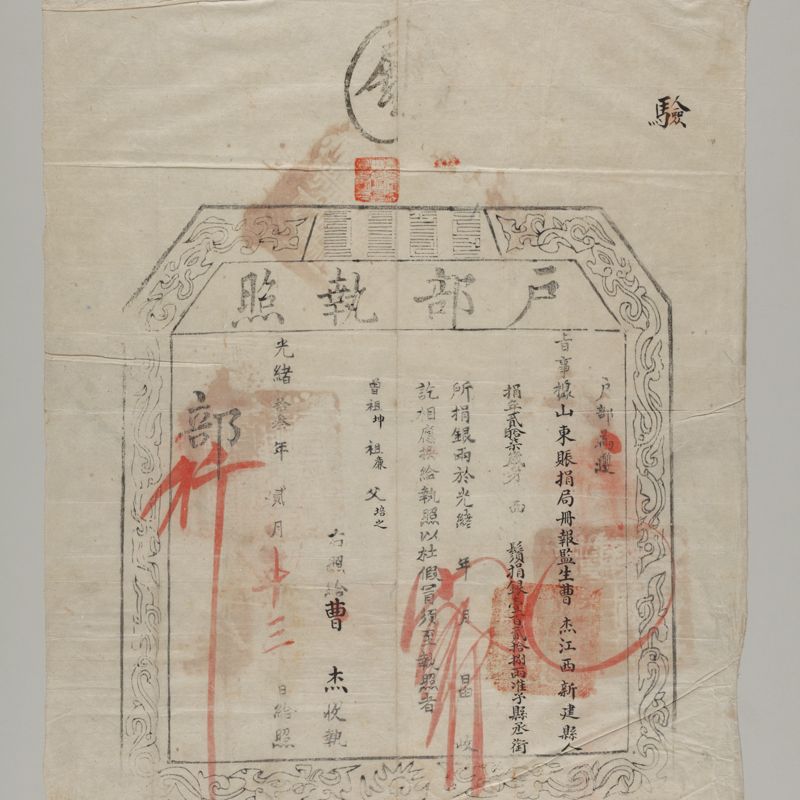 驗
戶部執照
戶部為遵
旨事據山東賑捐局冊報監生曹杰江西新建縣人
捐年貳拾柒歲身 面 鬚捐銀壹百貳拾捌兩准予縣丞銜
所捐銀兩於光緒 年 月 日 收
訖相應換給執照以杜假冒須至執照者
曾祖坤 祖廉 父培之
右照給曹杰收執
光緒拾叁年貳月十三日給照
部